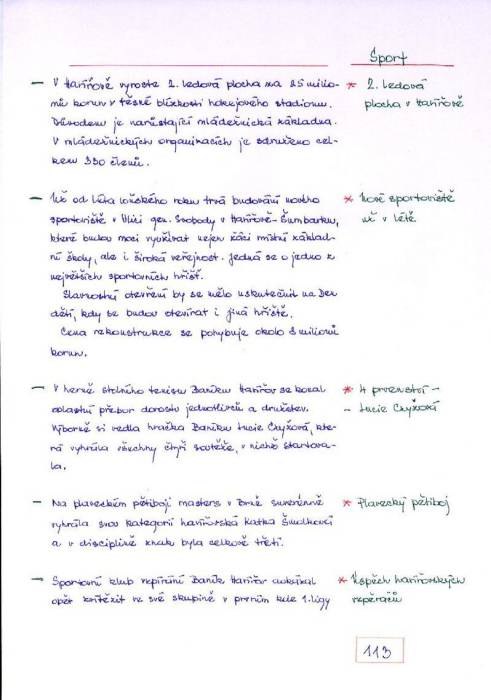 Sport
— V Havířově vyroste 2. ledová plocha za 25 milio-
nů korun v těsné blízkosti hokejového stadionu.
Důvodem je narůstající mládežnická základna.
V mládežnických organizacích je sdruženo cel-
kem 330 členů.
* 2. ledová
plocha v Havířově
— Už od léta loňského roku trvá budování nového
sportoviště v Ulici gen. Svobody v Havířově-Šumbarku,
které budou moci využívat nejen žáci místní základ-
ní školy, ale i široká veřejnost. Jedná se o jedno z
největších sportovních hřišť.
Slavnostní otevření by se mělo uskutečnit na Den
dětí, kdy se budou otevírat i jiná hřiště.
Cena rekonstrukce se pohybuje okolo 8 milionů
korun.
* Nové sportoviště
už v létě
— V herně stolního tenisu Baníku Havířov se konal
oblastní přebor dorostu jednotlivců a družstev.
Výborně si vedla hráčka Baníku Lucie Czyžová, kte-
rá vyhrála všechny čtyři soutěže, v nichž startova-
la.
* 4 prvenství —
— Lucie Czyžová
— Na plaveckém pětiboji masters v Brně suverénně
vyhrála svou kategorii havířovská Katka
a v disciplíně znak byla celkově třetí.
* Plavecký pětiboj
— Sportovní klub vzpírání Baník Havířov dokázal
opět zvítězit ve své skupině v prvním kole 1. ligy
* Úspěch havířovských
vzpěračů
113